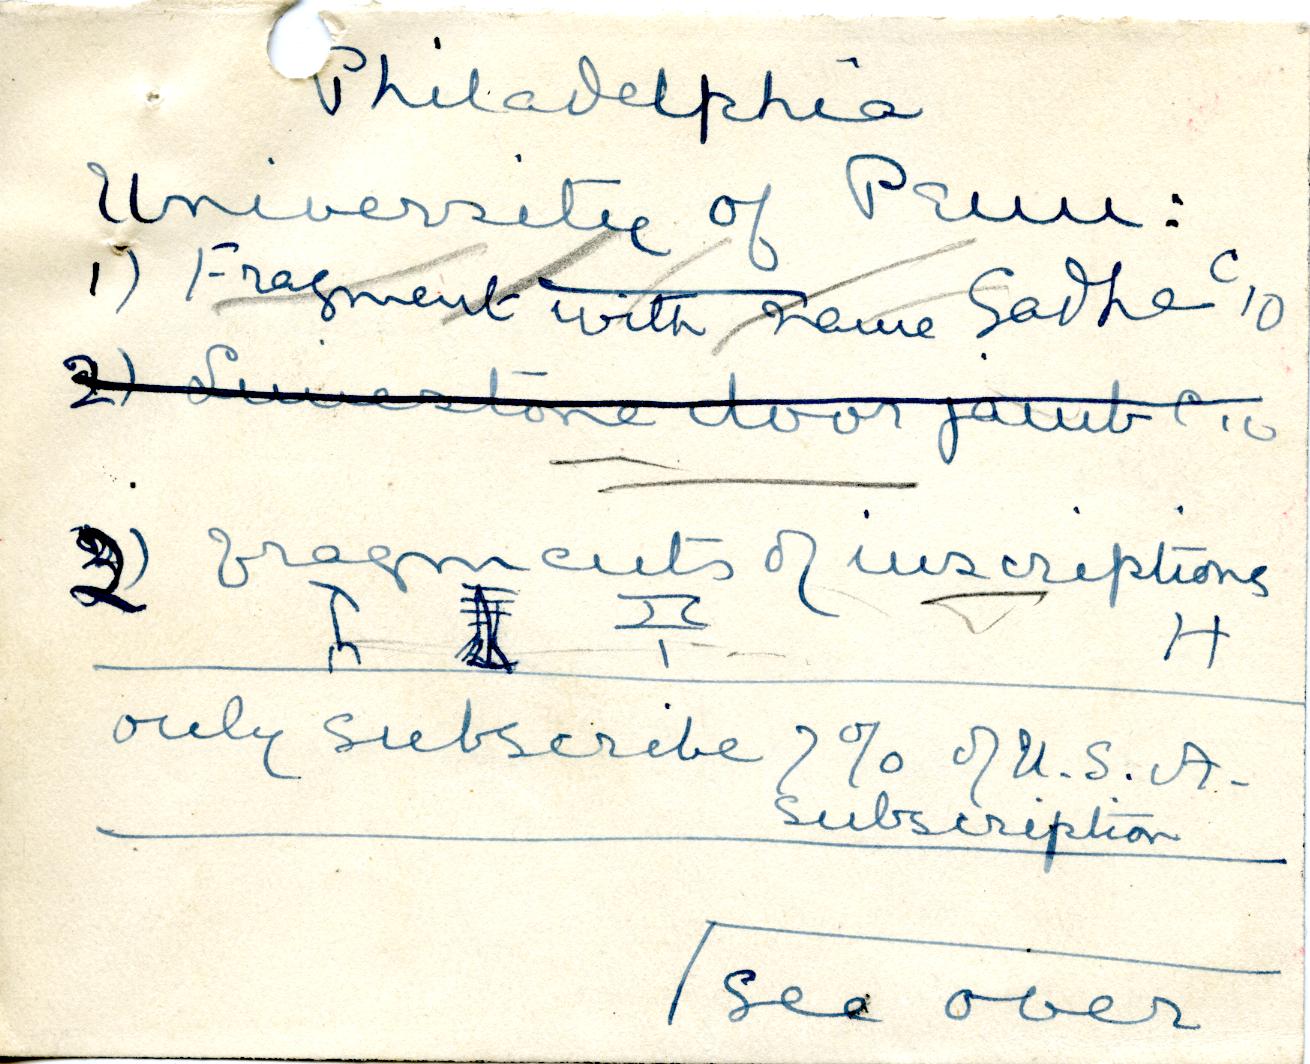 Philadelphia
University of Penn:
1) Fragment with name Sadhe C 10
2) Limestone door jamb C 10
2) Fragments of inscriptions
H
only subscribe 2% of U.S.A.
subscription
see over